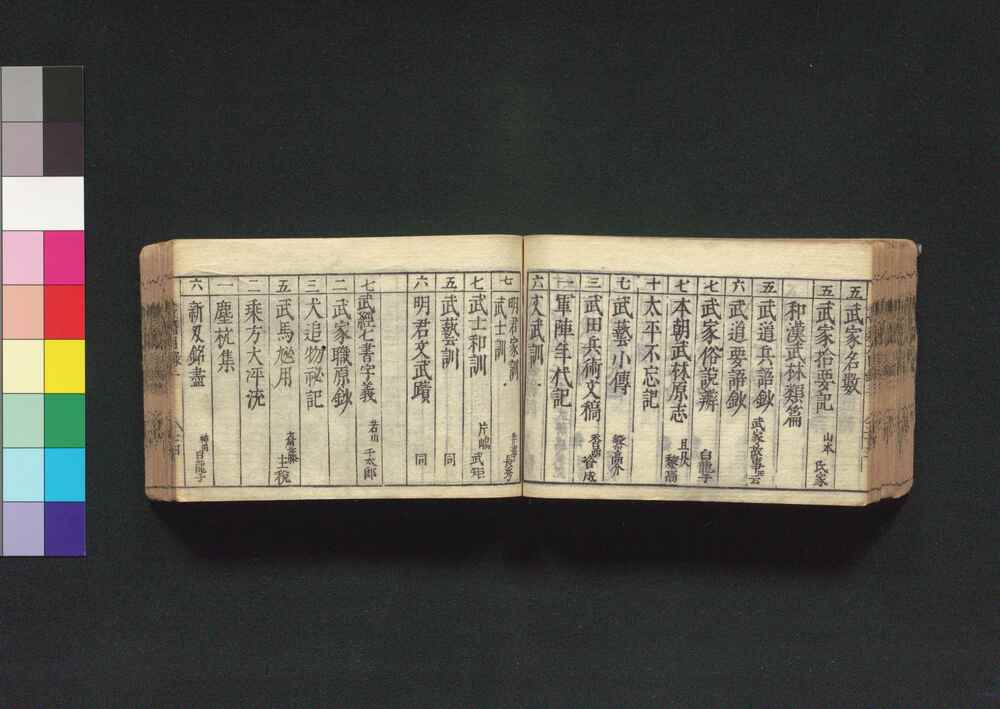 五 武家名數
五 武家拾要記 山本 氏家
和漢武林類篇
五 武道兵語鈔 武家故事云
六 武道要語鈔
七 武家俗説辨 白龍子
七 本朝武林原志 且良 黎高
十 太平不忘記
七 武藝小傳
三 武田兵術文稿 香西 咎成
二 軍陣年代記
六 文武訓
七 明君家訓
武士訓 長秀
七 武士和訓 片嶋 武矩
五 武藝訓 同
六 明君文武蹟 同
七 武經七書字義 若山 千太郎
二 武家職原鈔
三 犬追物祕記
五 武馬必用 齋藤 主税
二 乘方大坪流
一 塵杭集
六 新刄銘盡 神田 白龍子